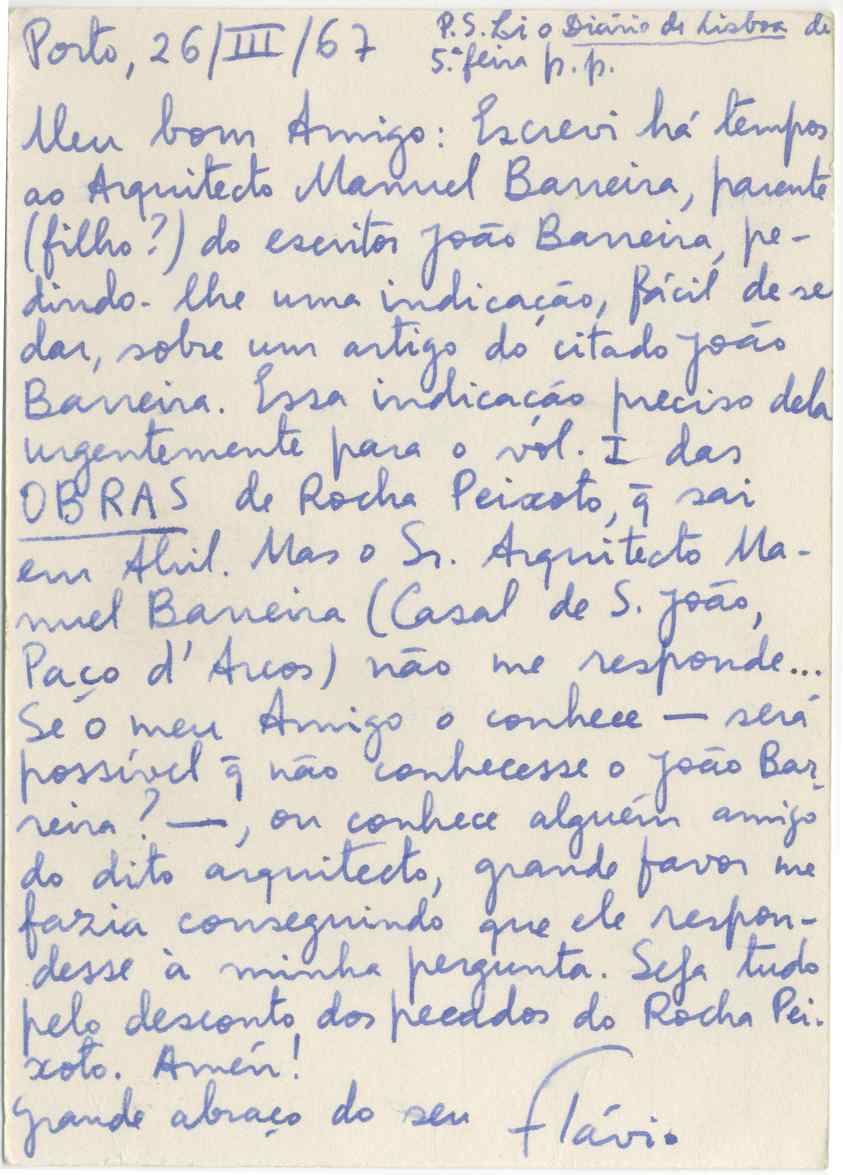 Porto, 26/III/67
P.S. Li o Diário de Lisboa de
5.ª feira p. p.
Meu bom Amigo: Escrevi há tempos
ao Arquitecto Manuel Barreira, parente
(filho?) do escritor João Barreira, pe-
dindo-lhe uma indicação, fácil de se
dar, sobre um artigo do citado João
Barreira. Essa indicação preciso dela
urgentemente para o vol. I das
OBRAS de Rocha Peixoto, q̃ sai
em Abril. Mas o Sr. Arquitecto Ma-
nuel Barreira (Casal de S. João,
Paço d'Arcos) não me responde...
Se o meu Amigo o conhece — será
possível q̃ não conhecesse o João Bar-
reira? —, ou conhece alguém amigo
do dito arquitecto, grande favor me
fazia conseguindo que ele respon-
desse à minha pergunta. Seja tudo
pelo desconto dos pecados do Rocha Pei-
xoto. Amén!
Grande abraço do seu Flávio